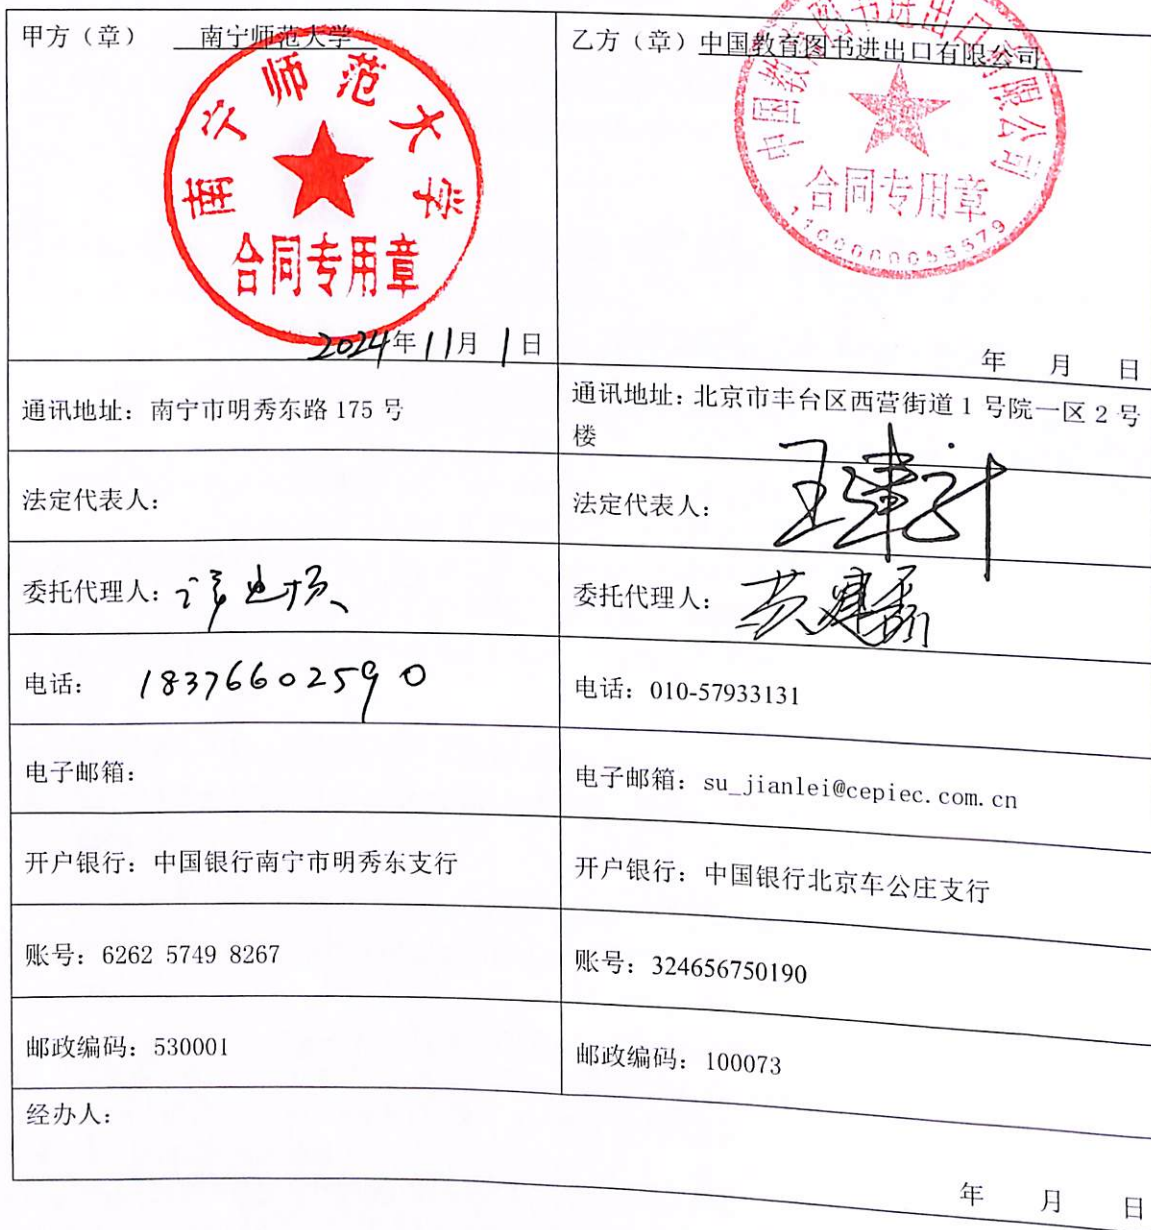 甲方（章） 南宁师范大学
南宁师范大学
合同专用章
2024年11月1日
乙方（章）中国教育图书进出口有限公司
中国教育图书进出口有限公司
合同专用章
年 月 日
通讯地址：南宁市明秀东路 175 号
通讯地址：北京市丰台区西营街道 1 号院一区 2 号
楼
法定代表人：
法定代表人：
委托代理人：
委托代理人：
电话： 18376602590
电话：010-57933131
电子邮箱：
电子邮箱：su_jianlei@cepiec.com.cn
开户银行：中国银行南宁市明秀东支行
开户银行：中国银行北京车公庄支行
账号：6262 5749 8267
账号：324656750190
邮政编码：530001
邮政编码：100073
经办人：
年 月 日